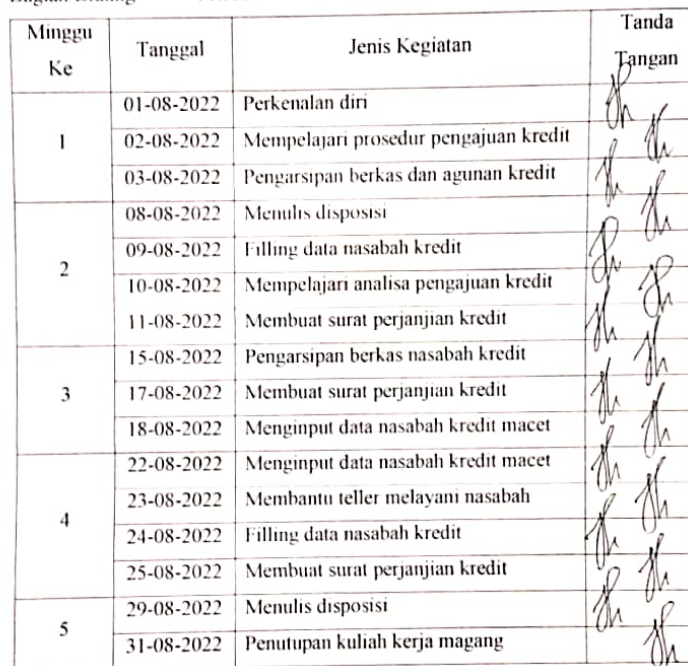 Minggu Ke Tanggal Jenis Kegiatan Tanda Tangan
1 01-08-2022 Perkenalan diri
02-08-2022 Mempelajari prosedur pengajuan kredit
03-08-2022 Pengarsipan berkas dan agunan kredit
2 08-08-2022 Menulis disposisi
09-08-2022 Filling data nasabah kredit
10-08-2022 Mempelajari analisa pengajuan kredit
11-08-2022 Membuat surat perjanjian kredit
3 15-08-2022 Pengarsipan berkas nasabah kredit
17-08-2022 Membuat surat perjanjian kredit
18-08-2022 Menginput data nasabah kredit macet
4 22-08-2022 Menginput data nasabah kredit macet
23-08-2022 Membantu teller melayani nasabah
24-08-2022 Filling data nasabah kredit
25-08-2022 Membuat surat perjanjian kredit
5 29-08-2022 Menulis disposisi
31-08-2022 Penutupan kuliah kerja magang